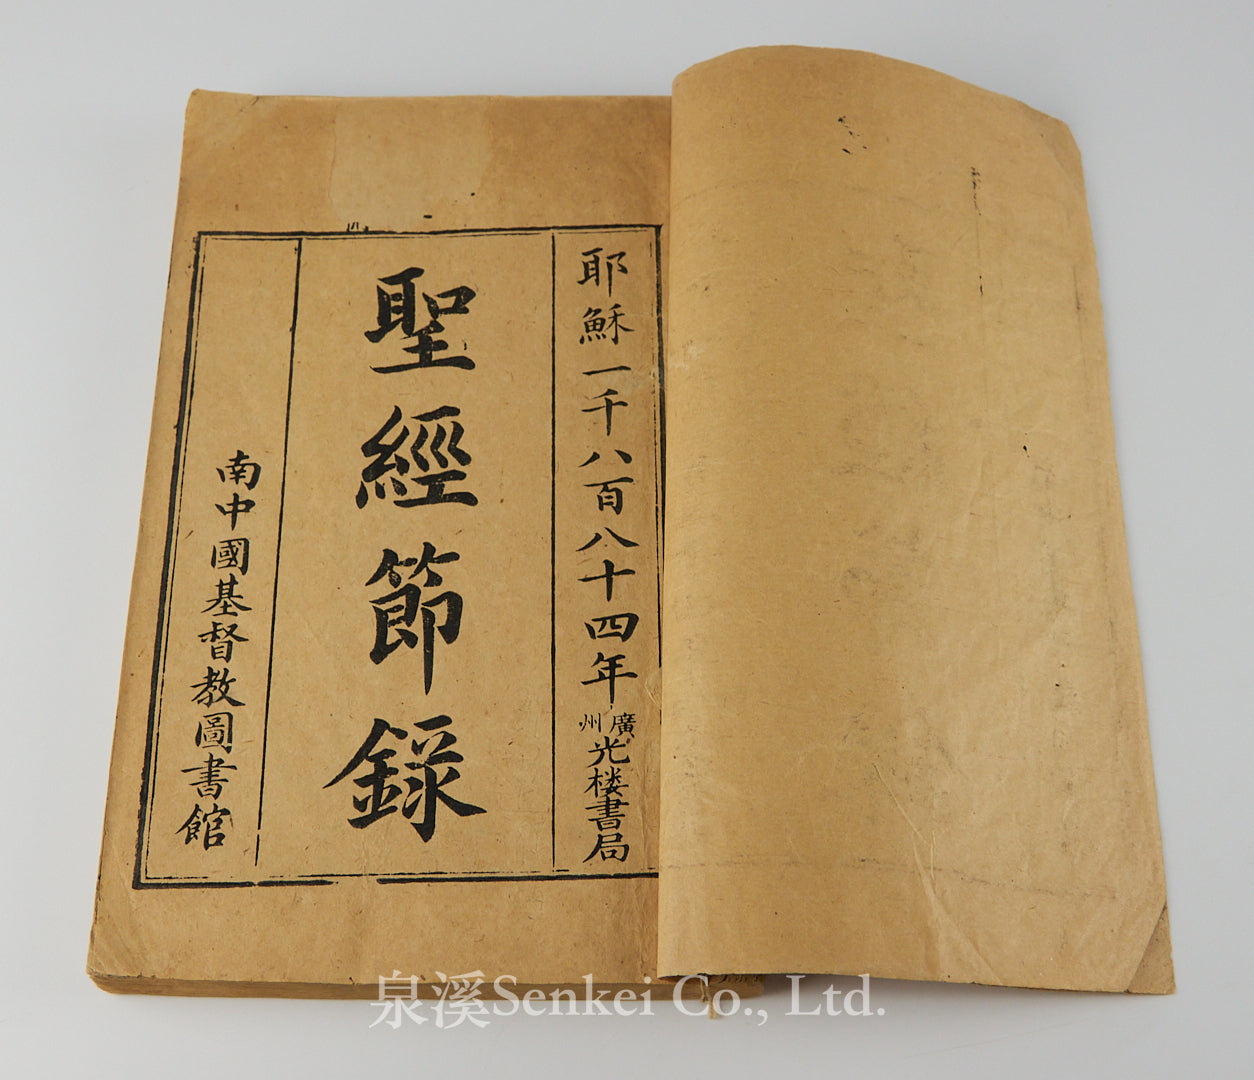 耶穌一千八百八十四年廣州光楼書局
聖經節錄
南中國基督教圖書館
泉溪Senkei Co., Ltd.